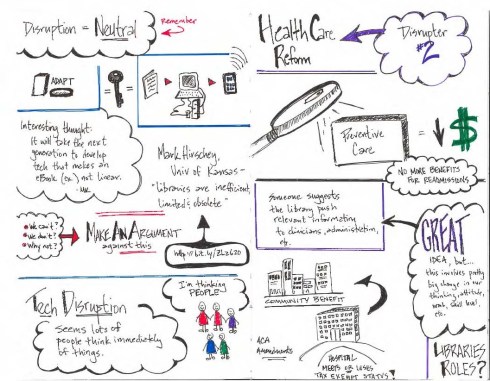 Disruption = Neutral
Remember
ADAPT
=
Interesting thought:
It will take the next
generation to develop
tech that makes an
eBook (ex.) not linear.
Mark Hirschey,
Univ of Kansas -
"Libraries are inefficient,
limited & obsolete"
We can't?
We don't?
Why not?
MAKE AN ARGUMENT
against this
Tech Disruption
Seems lots of
people think immediately
of things.
I'm thinking
PEOPLE
HealthCare
Reform
Disrupter
#2
Preventive
Care
=
$
NO MORE BENEFITS
FOR READMISSIONS
Someone suggests
the library push
relevant information
to clinicians, administration,
etc.
GREAT
IDEA, but...
this involves pretty
big change in our
thinking, attitude,
work, skill level,
etc.
COMMUNITY BENEFIT
ACA
Amendments
HOSPITAL
MEETS OR LOSES
TAX EXEMPT STATUS!
LIBRARIES
ROLES?